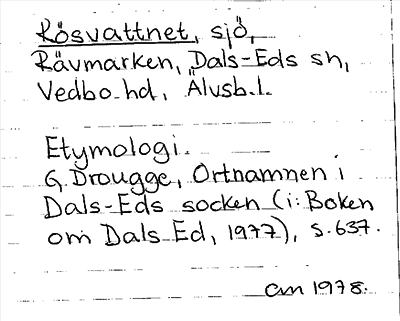 Kösvattnet, sjö,
Rävmarken, Dals-Eds sn,
Vedbo hd, Älvsb. l.
Etymologi.
G. Drougge, Ortnamnen i
Dals-Eds socken (i: Boken
om Dals-Ed, 1977), s. 637.
am 1978.